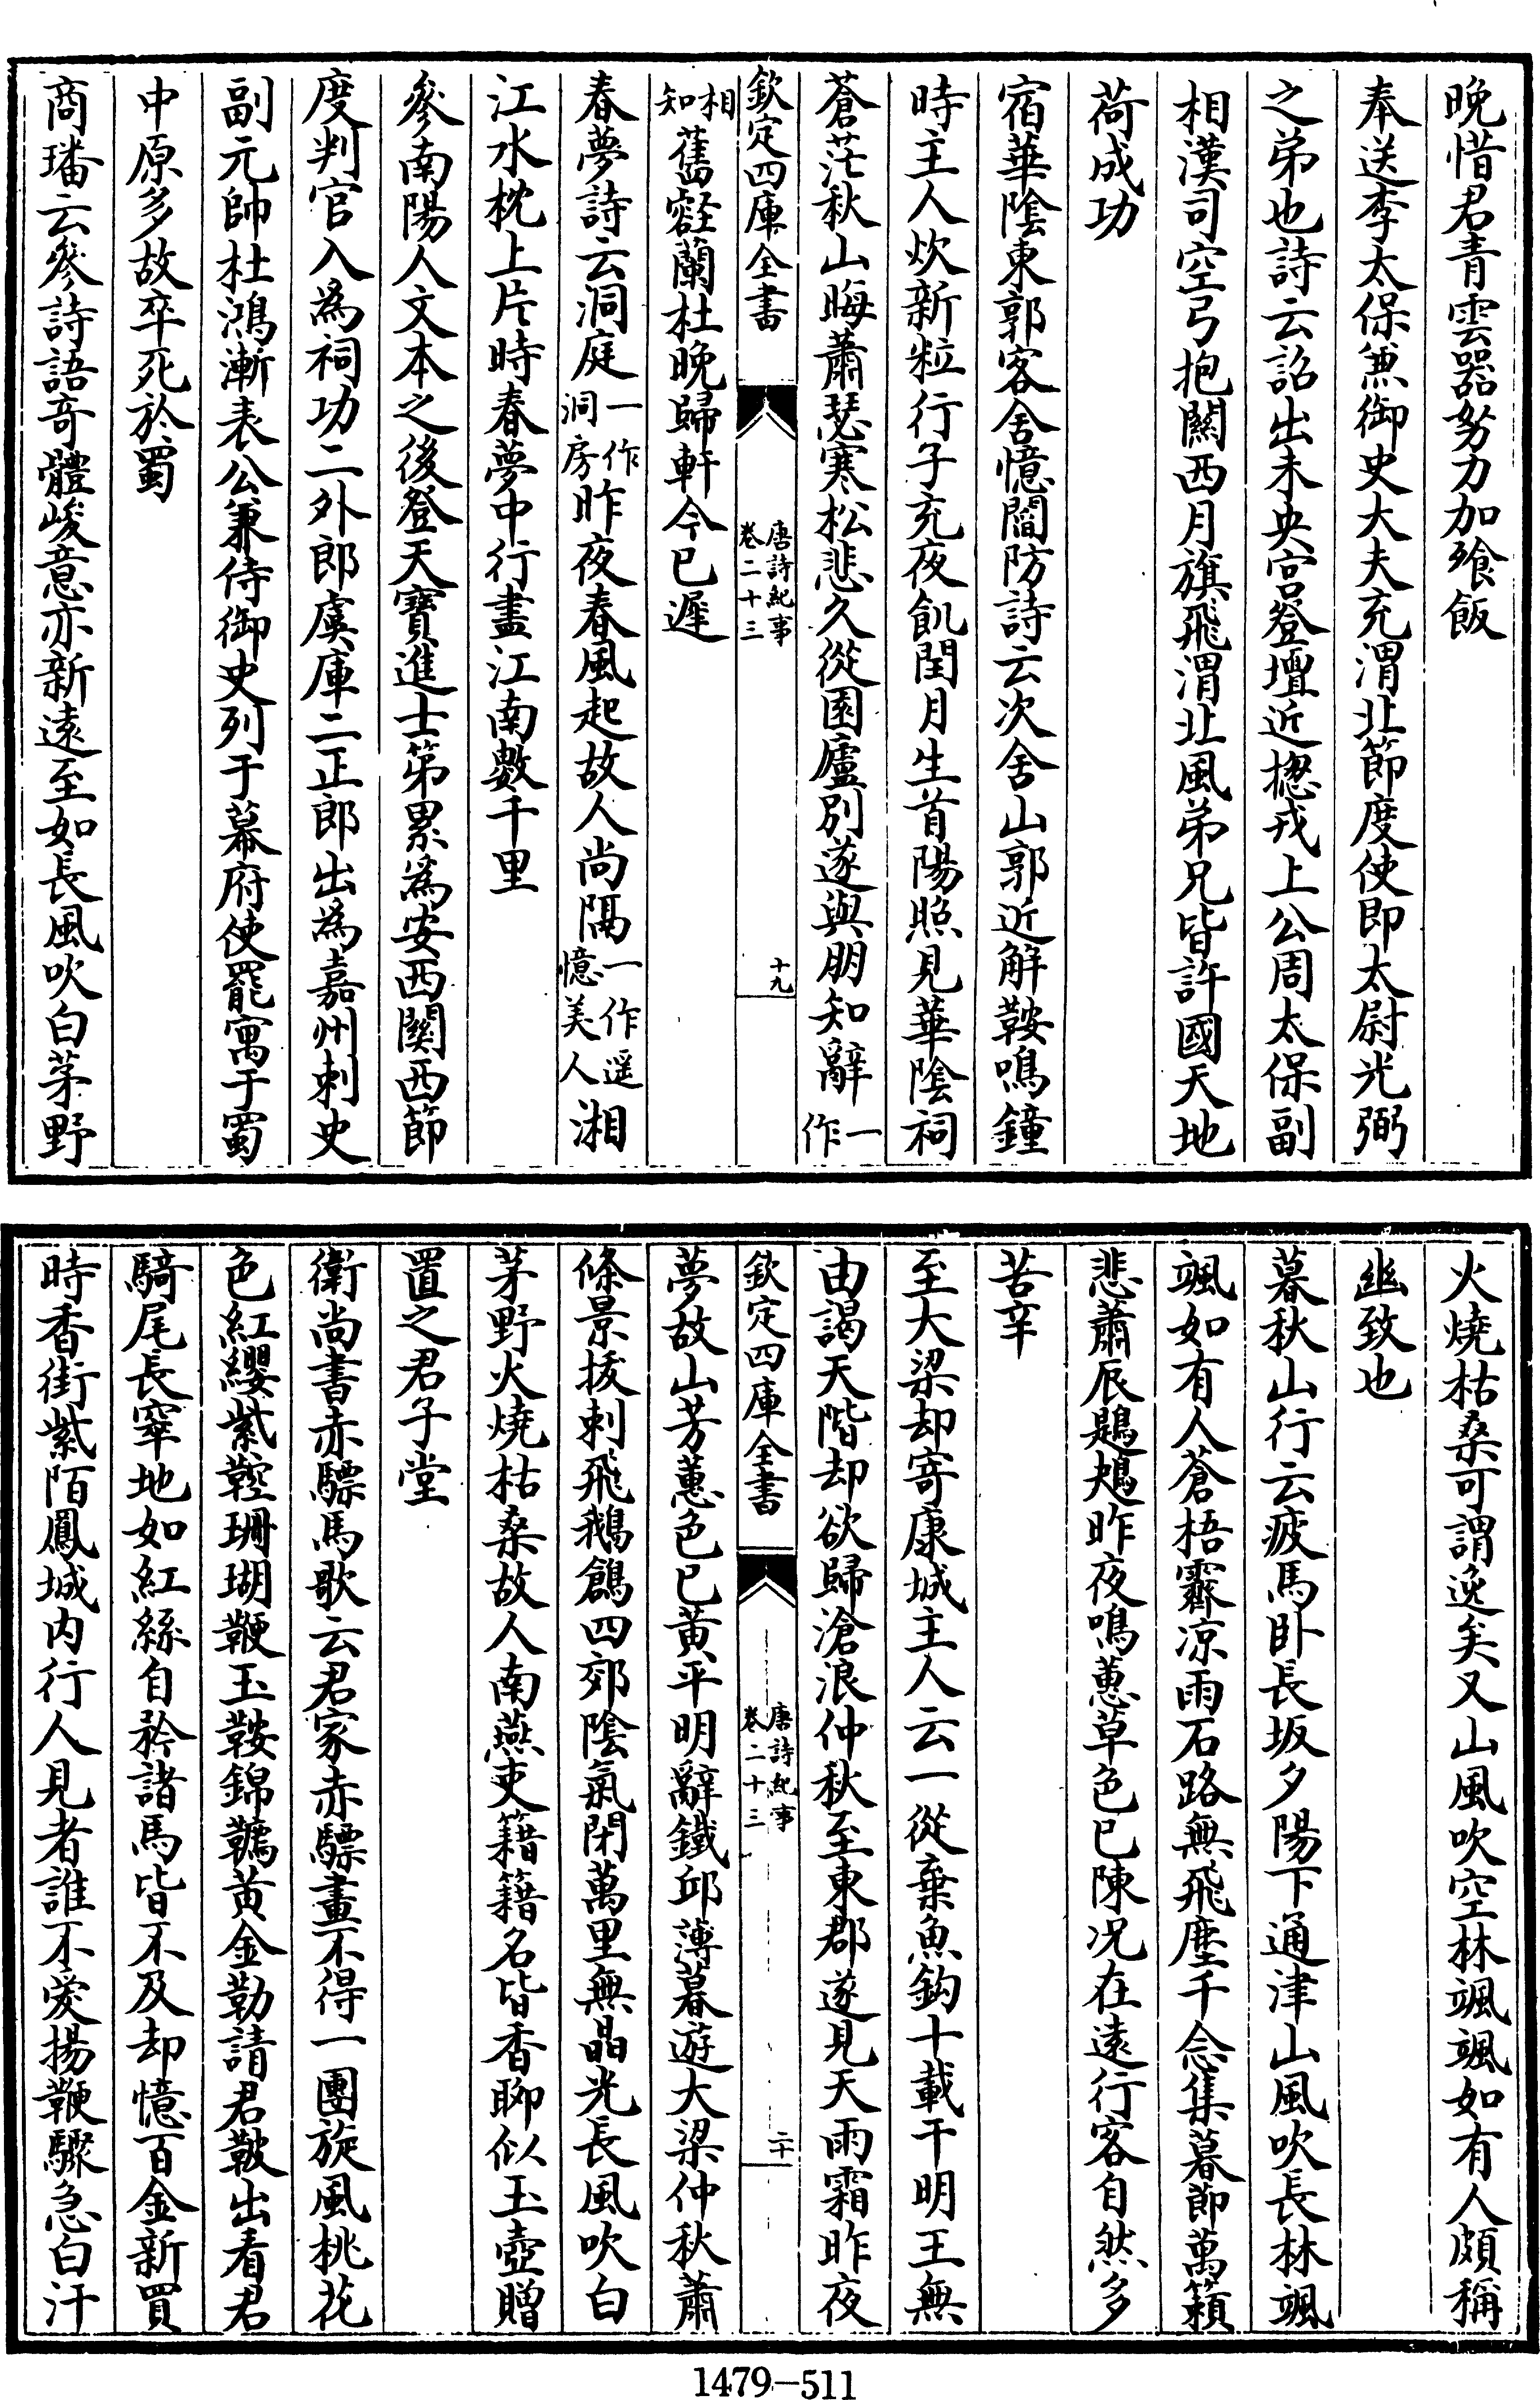 晚惜君青雲器努力加飱飯
奉送李太保兼御史大夫充渭北節度使即太尉光弼
之弟也詩云詔出未央宫登壇近揔戎上公周太保副
相漢司空弓抱關西月旗飛渭北風弟兄皆許國天地
荷成功
宿華隂東郭客舍憶閻防詩云次舍山郭近解鞍鳴鐘
時主人炊新粒行子充夜飢閏月生首陽照見華隂祠
蒼茫秋山晦蕭瑟寒松悲久從園廬别遂與朋知辭一作
欽定四庫全書
唐詩紀事
卷二十三
十九
相知舊壑蘭杜晚歸軒今已遲
春夢詩云洞庭一作洞房昨夜春風起故人尚隔一作遥憶美人湘
江水枕上片時春夢中行盡江南數千里
參南陽人文本之後登天寶進士第累為安西關西節
度判官入為祠功二外郎虞庫二正郎出為嘉州刺史
副元帥杜鴻漸表公兼侍御史列于幕府使罷寓于蜀
中原多故卒死於蜀
商璠云參詩語奇體峻意亦新遠至如長風吹白茅野
火燒枯桑可謂逸矣又山風吹空林颯颯如有人頗稱
幽致也
暮秋山行云疲馬卧長坂夕陽下通津山風吹長林颯
颯如有人蒼梧霽凉雨石路無飛塵千念集暮節萬籟
悲蕭辰鶗鴂昨夜鳴蕙草色已陳况在遠行客自然多
苦辛
至大梁却寄康城主人云一從棄魚鈎十載干明王無
由謁天階却欲歸滄浪仲秋至東郡遂見天雨霜昨夜
欽定四庫全書
唐詩紀事
卷二十三
二十
夢故山芳蕙色已黄平明辭鐵邱薄暮遊大梁仲秋蕭
條景拔刺飛鵝鶬四郊隂氣閉萬里無晶光長風吹白
茅野火燒枯桑故人南燕吏籍籍名皆香聊似玉壺贈
置之君子堂
衛尚書赤驃馬歌云君家赤驃畫不得一團旋風桃花
色紅纓紫鞚珊瑚鞭玉鞍錦韉黄金勒請君鞁出看君
騎尾長窣地如紅絲自矜諸馬皆不及却憶百金新買
時香街紫陌鳳城内行人見者誰不愛揚鞭驟急白汗
1479-511